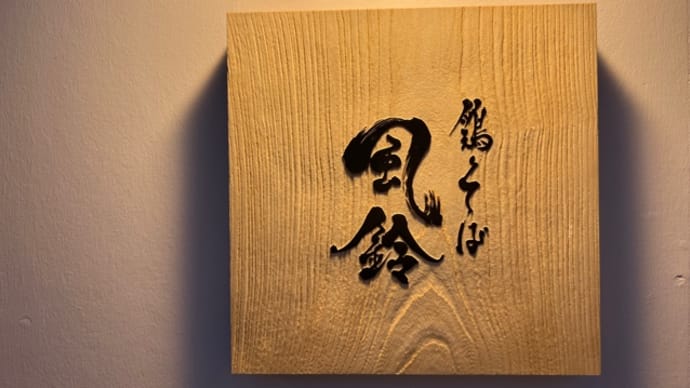 鶏そば
風鈴